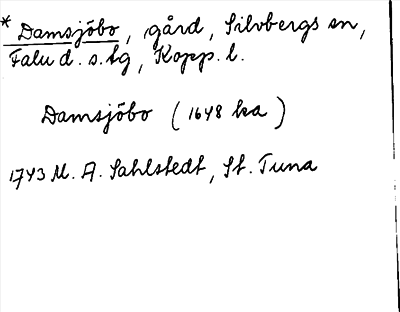 * Damsjöbo, gård, Silvbergs sn,
Falu d. s. lg, Kopp. l.
Damsjöbo (1648 ka)
1743 M. A. Sahlstedt, St. Tuna